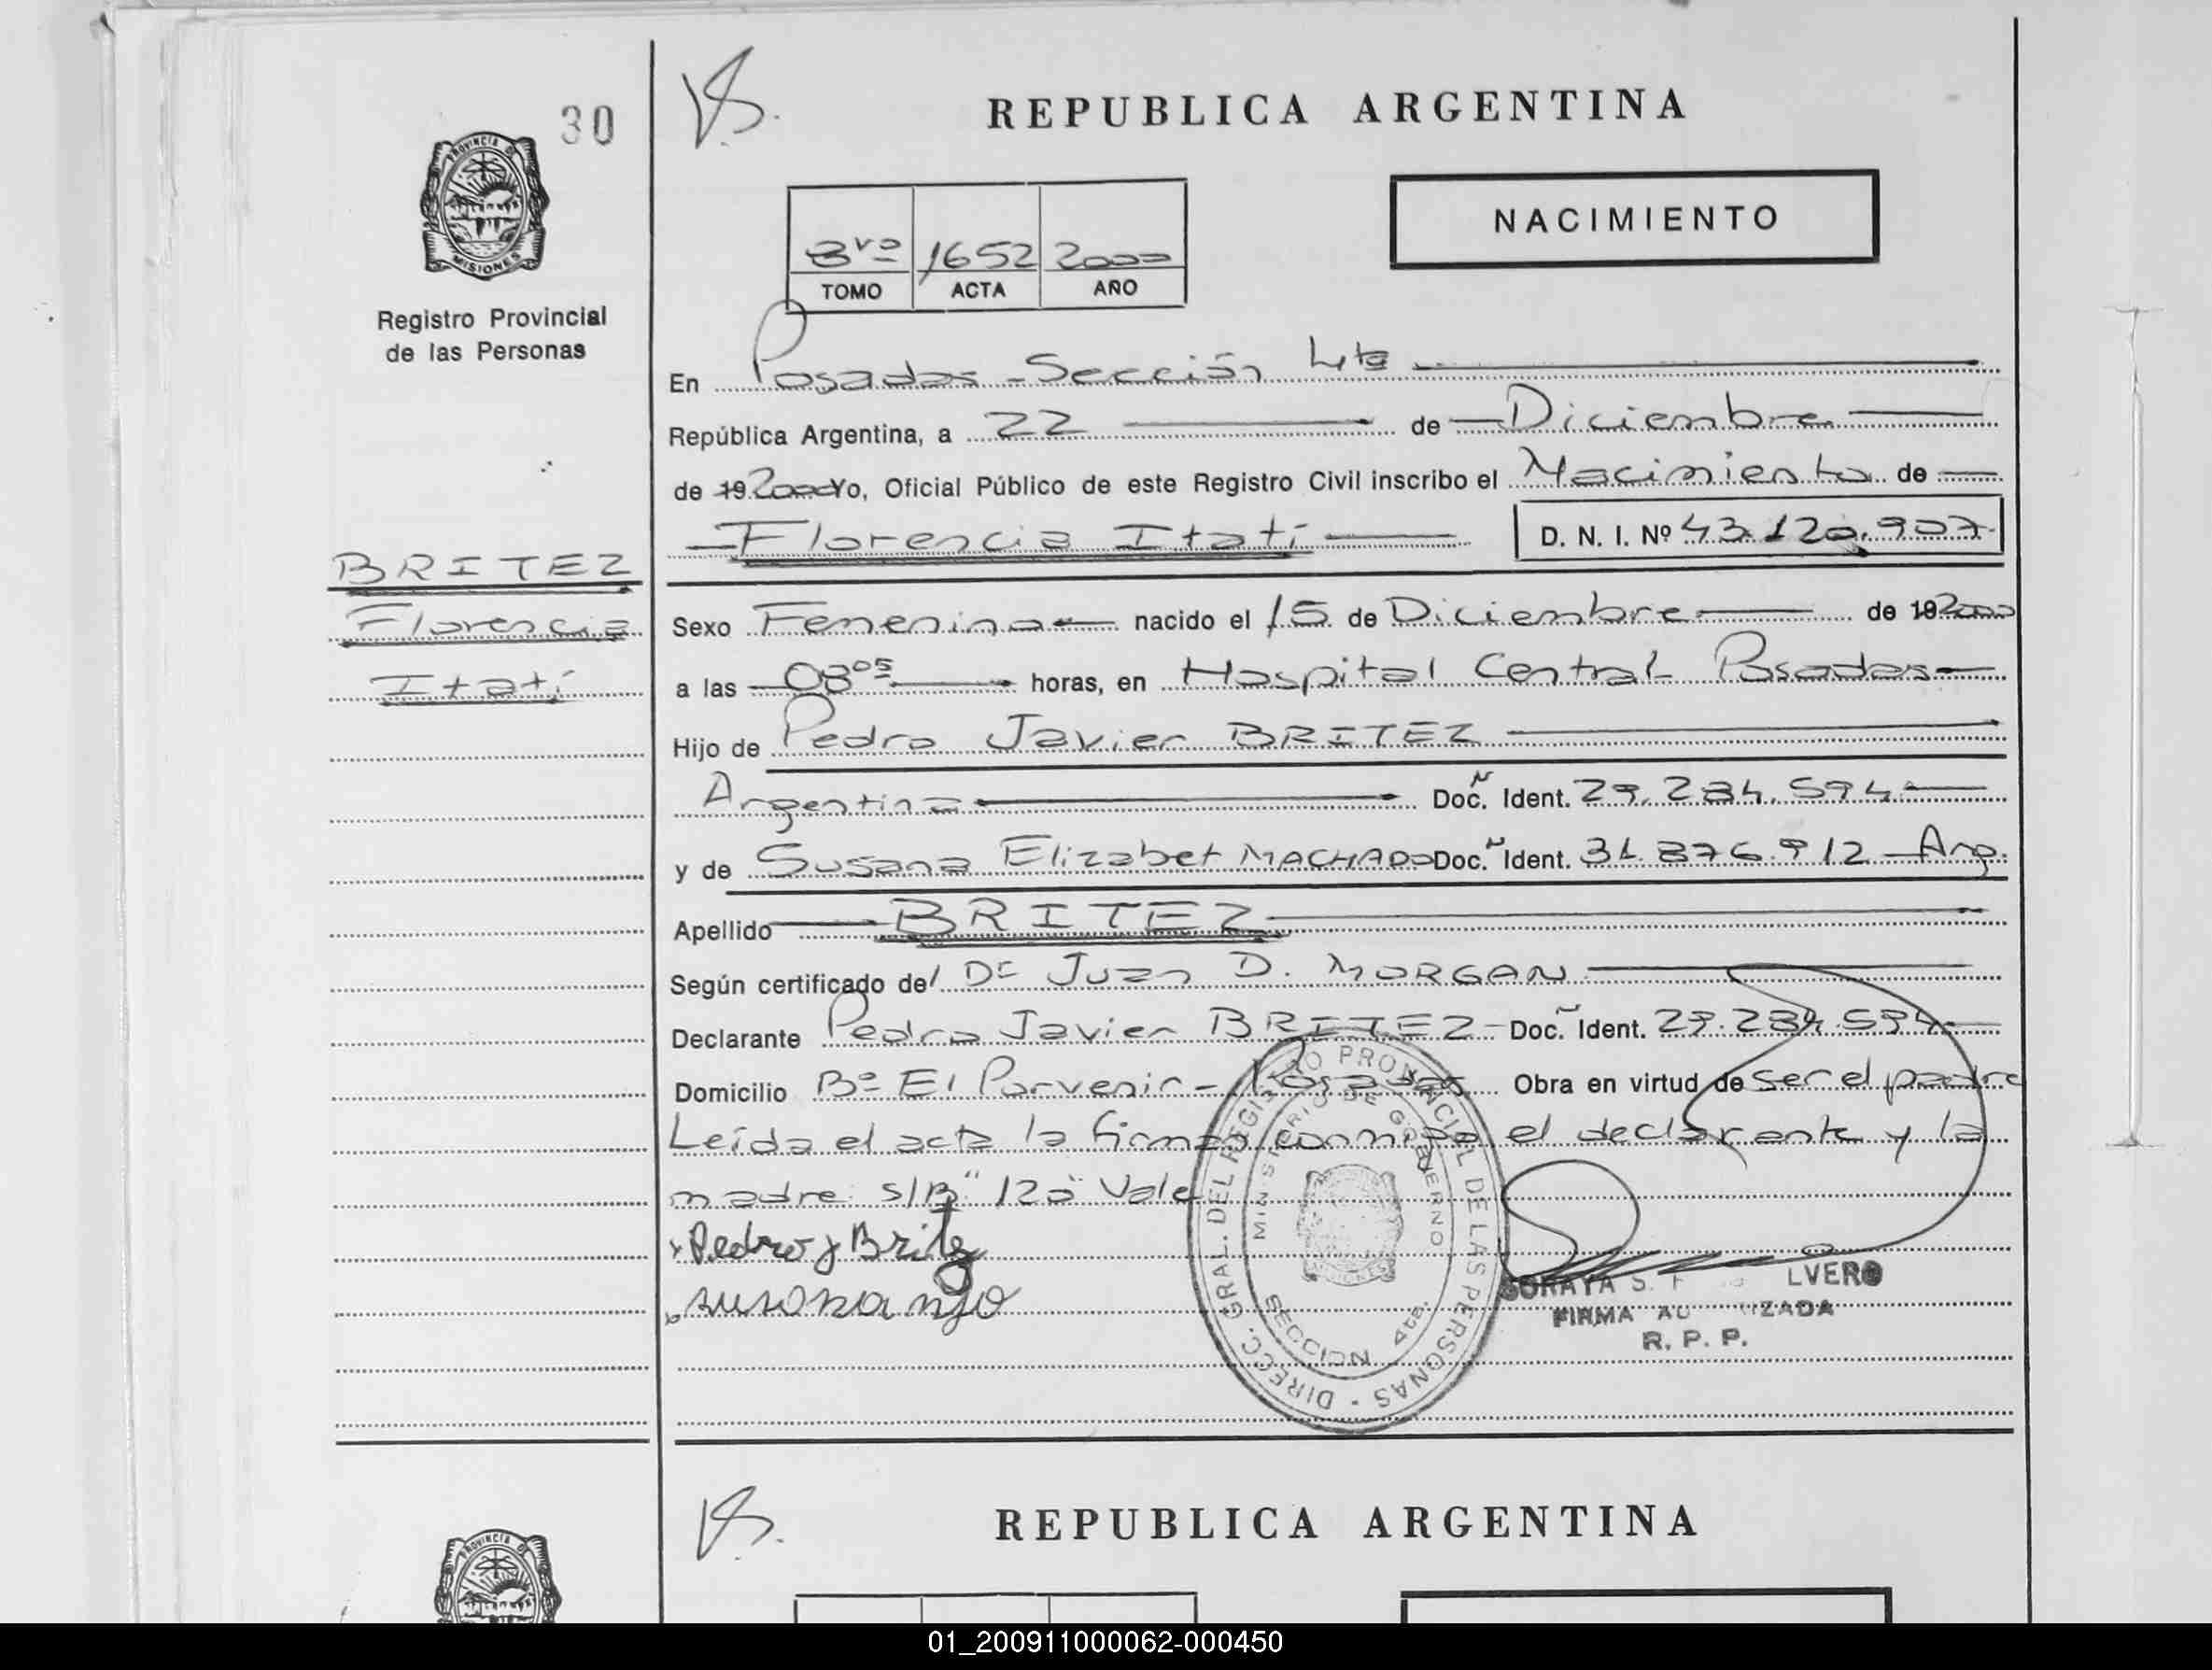 30
REPUBLICA ARGENTINA
PROVINCIA DE
MISIONES
Registro Provincial
de las Personas
NACIMIENTO
3ro 1652 2000
TOMO ACTA AÑO
En Posadas - Sección 4ta
República Argentina, a 22 de Diciembre
de 19 2000 Yo, Oficial Público de este Registro Civil inscribo el Nacimiento de
Florencia Itatí D. N. I. Nº 43.120.907
BRITEZ
Florencia
Itatí
Sexo Femenino nacido el 15 de Diciembre de 19 2000
a las 08 05 horas, en Hospital Central Posadas
Hijo de Pedro Javier BRITEZ
Argentina Doc. Ident. 29.284.594
y de Susana Elizabet MACHADO Doc. Ident. 31.876.912 - Arg.
Apellido BRITEZ
Según certificado del Dr Juan D. MORGAN
Declarante Pedro Javier BRITEZ - Doc. Ident. 29.284.594
Domicilio Bº El Porvenir - Posadas Obra en virtud de ser el padre
Leída el acta la firman conmigo el declarante y la
madre. S/B "120" Vale
Pedro J Britez
susana
DIRECC. GRAL. DEL REGISTRO PROVINCIAL DE LAS PERSONAS -
MINISTERIO DE GOBIERNO
SECCION 4ta.
SORAYA S. LVERO
FIRMA AUTORIZADA
R. P. P.
REPUBLICA ARGENTINA
PROVINCIA DE
01_200911000062-000450